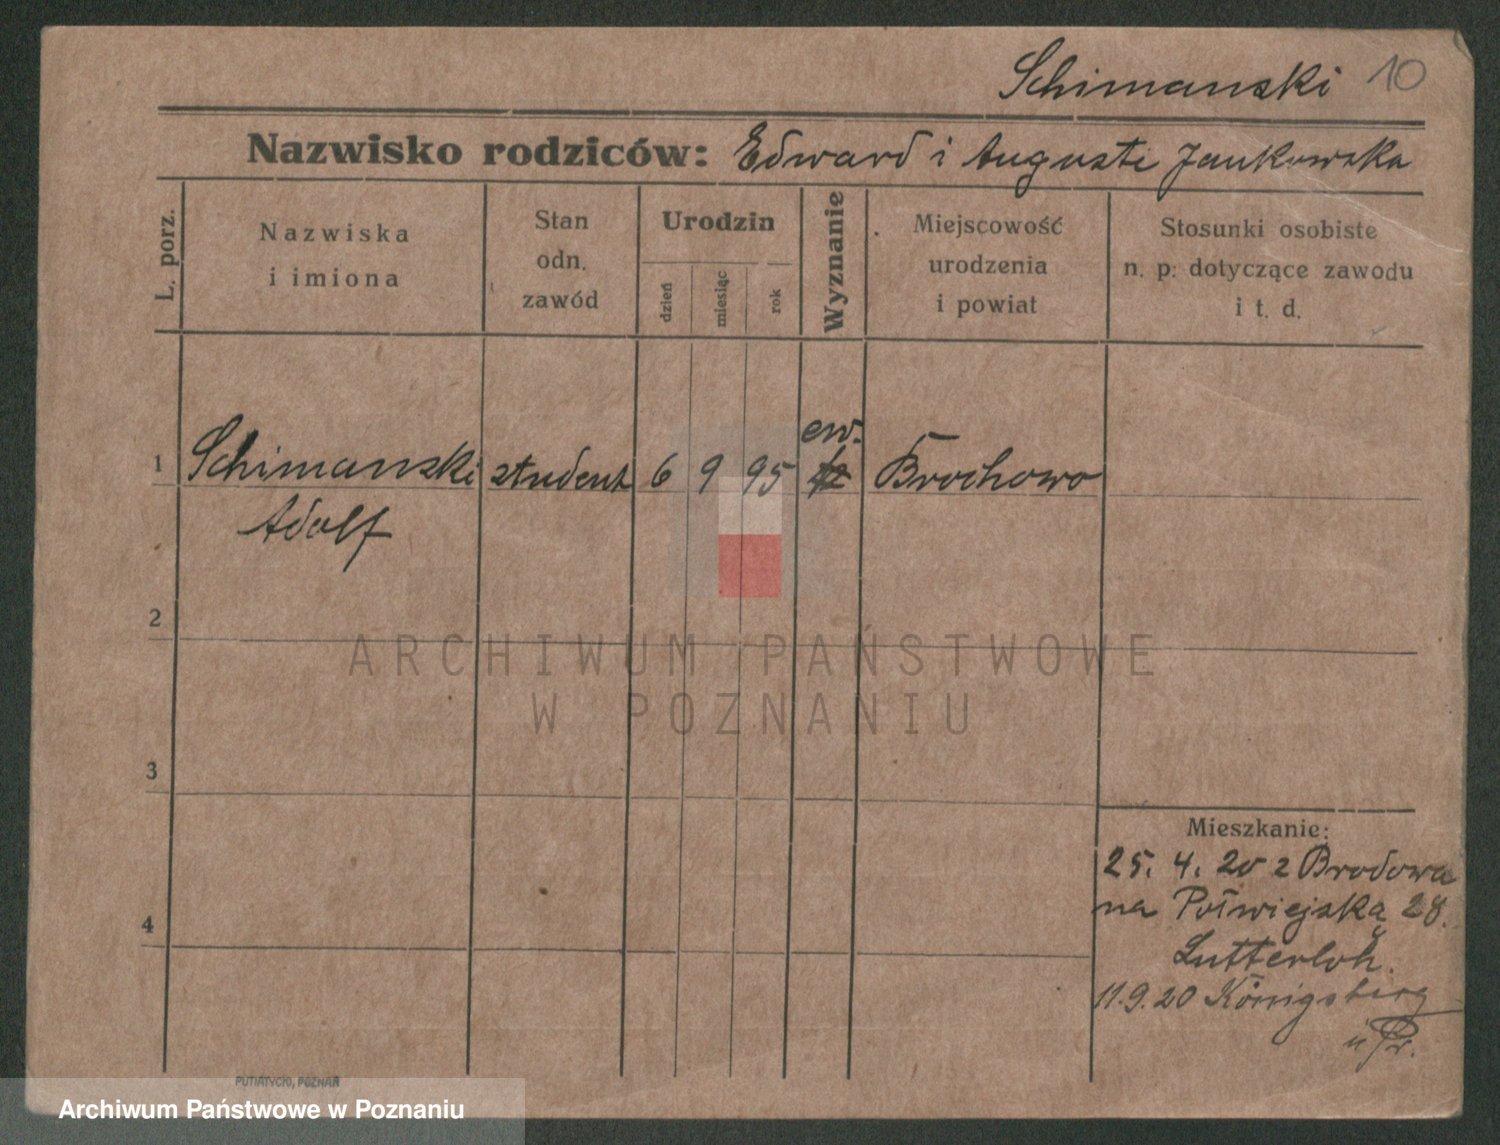 Schimanski 10
Nazwisko rodziców: Edward i Auguste Jankowska
L. porz.
Nazwiska
i imiona
Stan
odn.
zawód
Urodzin
dzień
miesiąc
rok
Wyznanie
Miejscowość
urodzenia
i powiat
Stosunki osobiste
n. p. dotyczące zawodu
i t. d.
ew.
1 Schimanski student 6 9 95 Brochowo
Adolf
2
3
4
Mieszkanie:
25. 4. 20 z Brodowa
na Półwiejską 28.
Lutterloh.
11.9.20 Königsberg
i/Pr.
PUTIATYCKI, POZNAŃ
ARCHIWUM PAŃSTWOWE
W POZNANIU
Archiwum Państwowe w Poznaniu